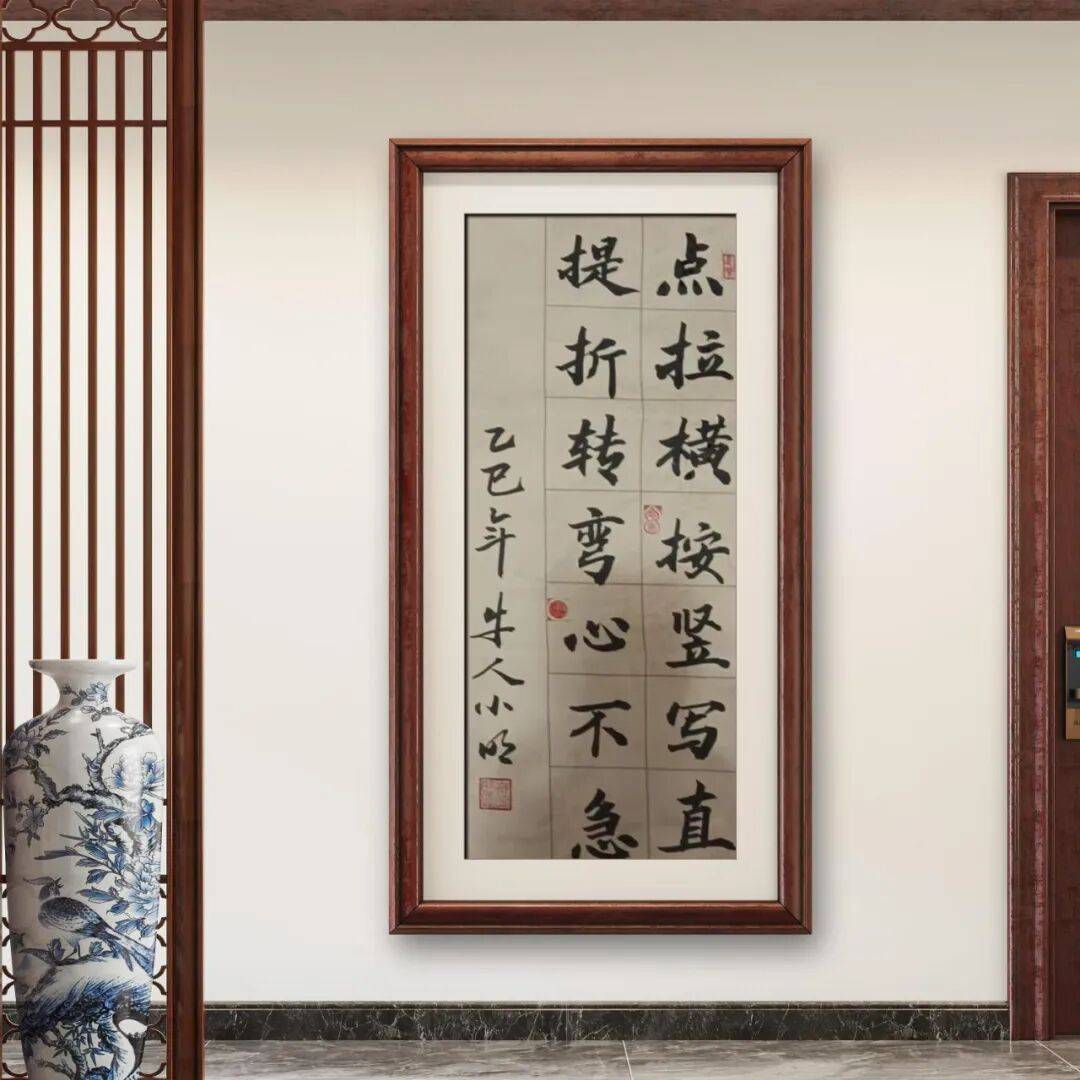 点拉横按竖写直
提折转弯心不急
乙巳年牛人小明